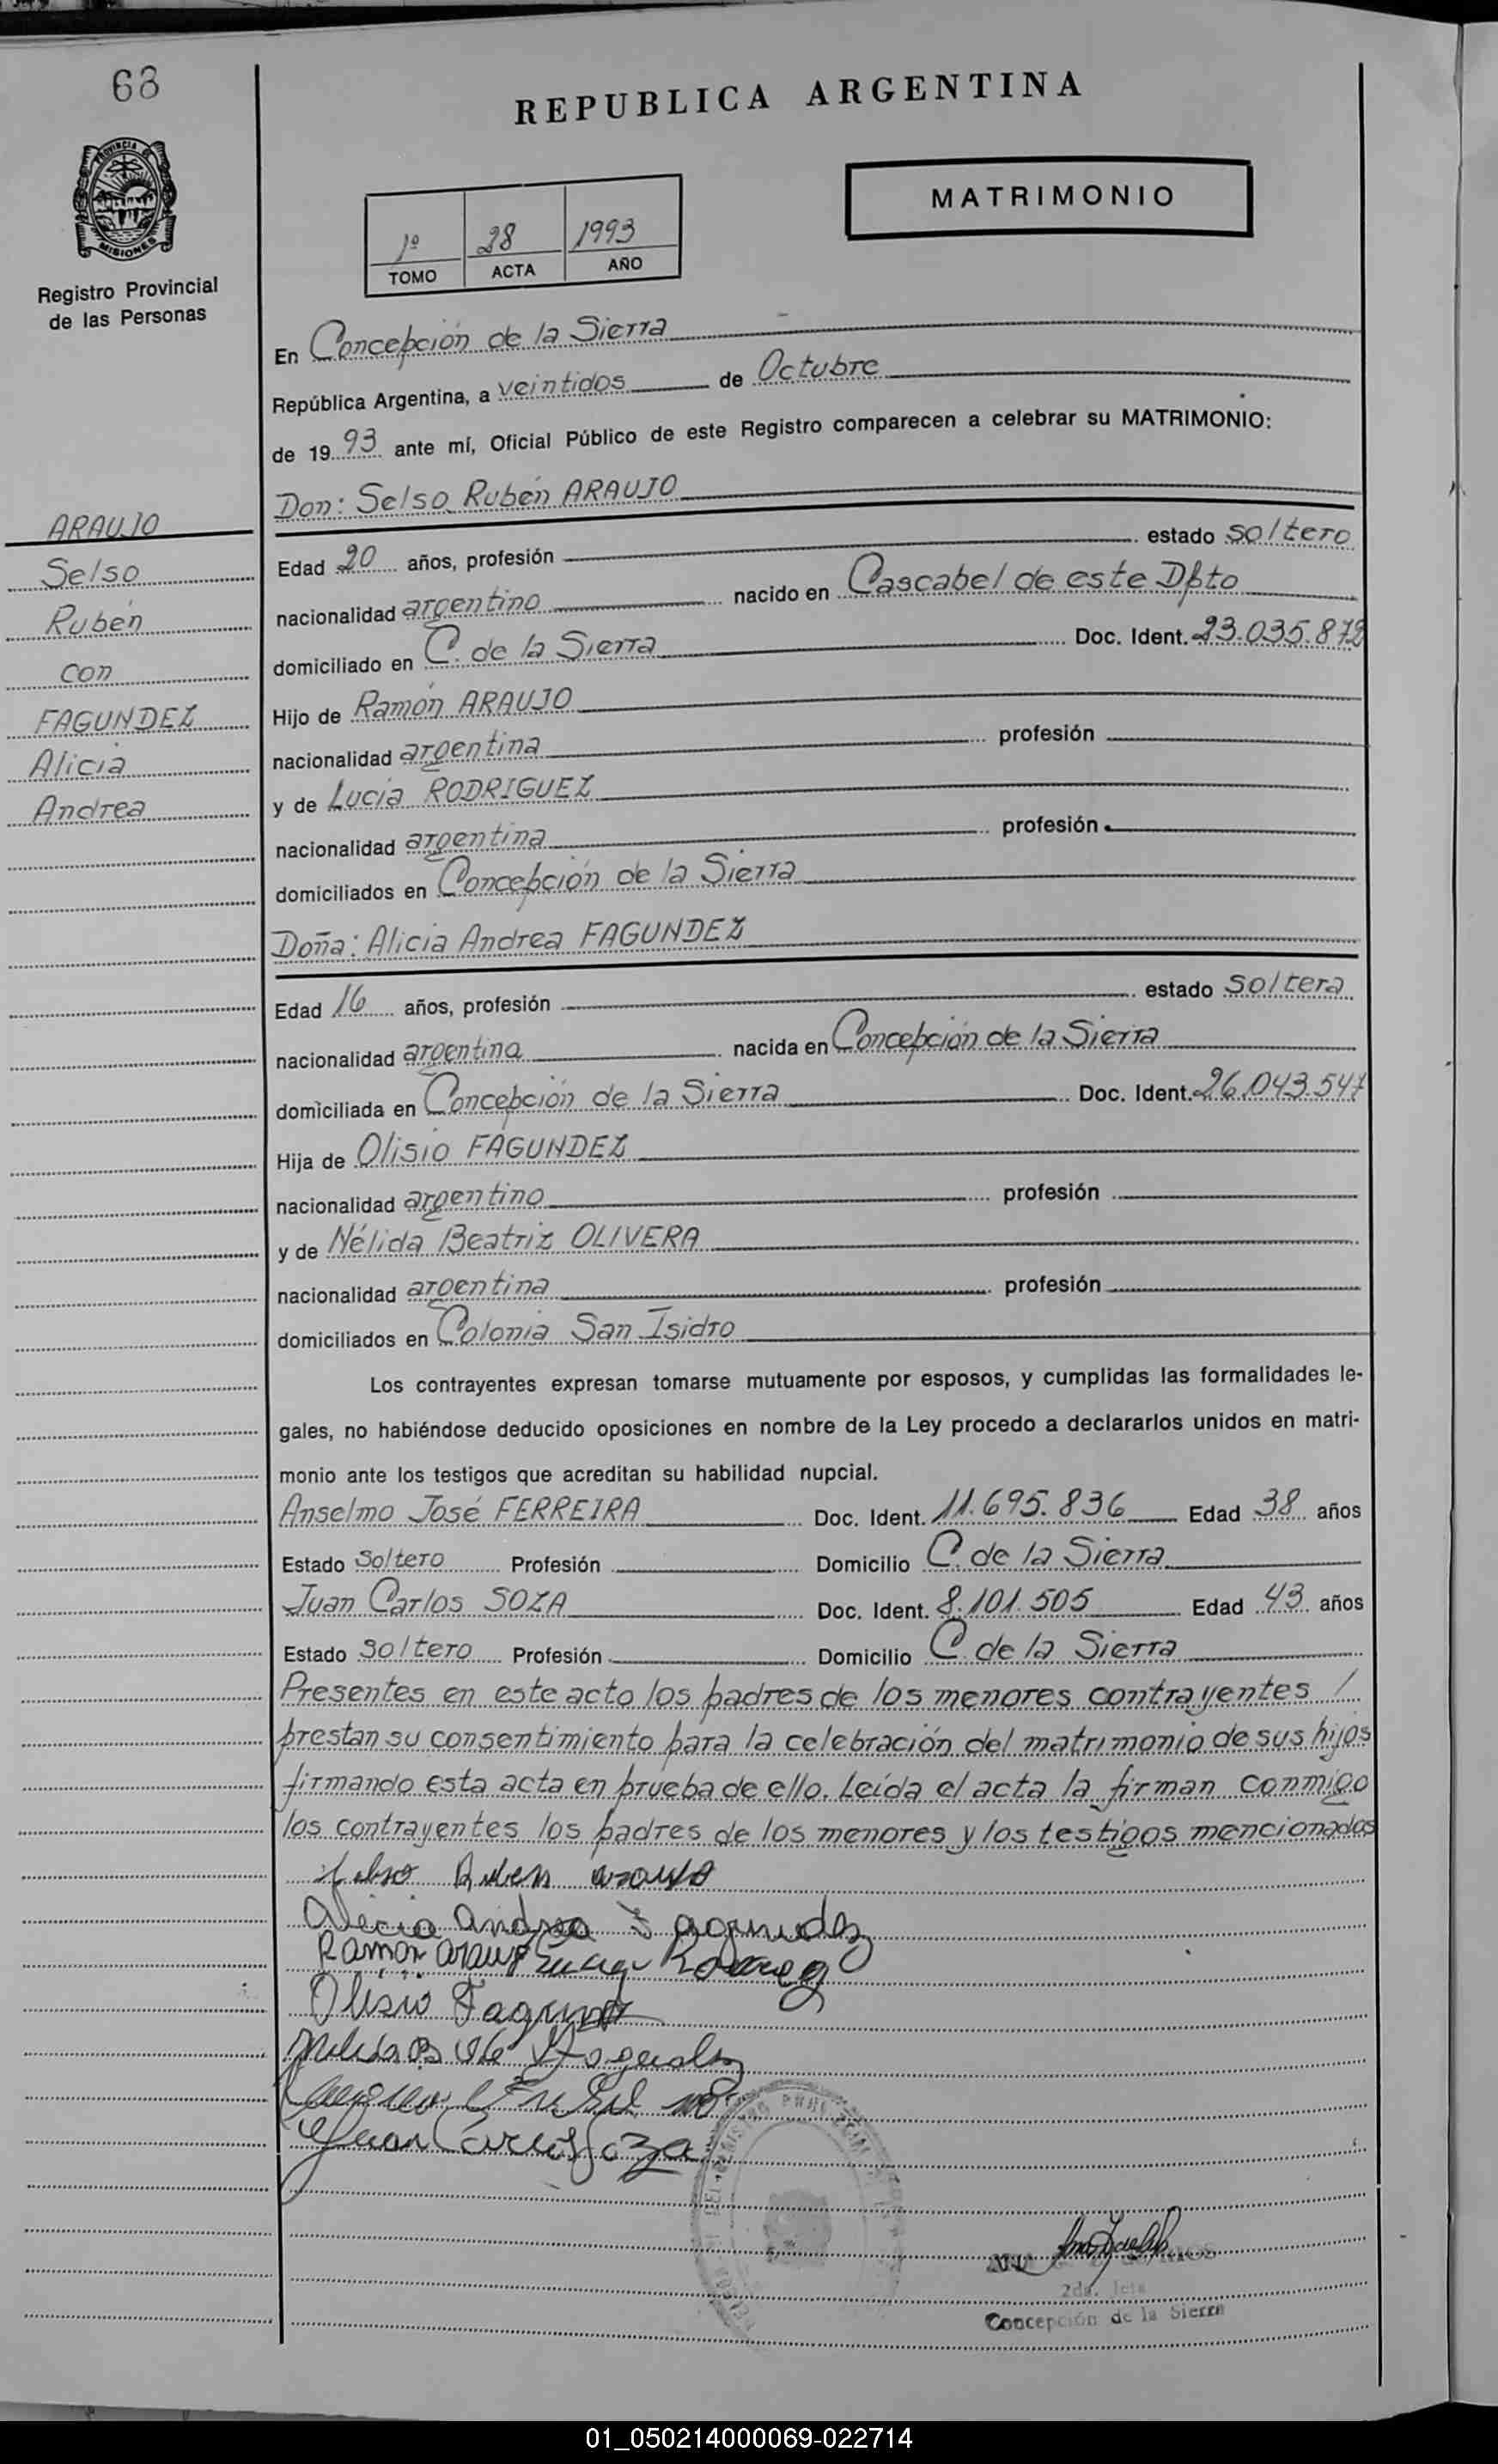 68
REPUBLICA ARGENTINA
MATRIMONIO
1º 28 1993
TOMO ACTA AÑO
PROVINCIA DE
MISIONES
Registro Provincial
de las Personas
En Concepción de la Sierra
República Argentina, a veintidos de Octubre
de 19 93 ante mí, Oficial Público de este Registro comparecen a celebrar su MATRIMONIO:
Don: Selso Rubén ARAUJO
ARAUJO
Selso
Rubén
con
FAGUNDEZ
Alicia
Andrea
Edad 20 años, profesión estado soltero
nacionalidad argentino nacido en Cascabel de este Dpto
domiciliado en C. de la Sierra Doc. Ident. 23.035.872
Hijo de Ramón ARAUJO
nacionalidad argentina profesión
y de Lucía RODRIGUEZ
nacionalidad argentina profesión
domiciliados en Concepción de la Sierra
Doña: Alicia Andrea FAGUNDEZ
Edad 16 años, profesión estado soltera
nacionalidad argentina nacida en Concepción de la Sierra
domiciliada en Concepción de la Sierra Doc. Ident. 26.043.547
Hija de Olisio FAGUNDEZ
nacionalidad argentino profesión
y de Nélida Beatriz OLIVERA
nacionalidad argentina profesión
domiciliados en Colonia San Isidro
Los contrayentes expresan tomarse mutuamente por esposos, y cumplidas las formalidades le-
gales, no habiéndose deducido oposiciones en nombre de la Ley procedo a declararlos unidos en matri-
monio ante los testigos que acreditan su habilidad nupcial.
Anselmo José FERREIRA Doc. Ident. 11.695.836 Edad 38 años
Estado Soltero Profesión Domicilio C. de la Sierra
Juan Carlos SOZA Doc. Ident. 8.101.505 Edad 43 años
Estado Soltero Profesión Domicilio C. de la Sierra
Presentes en este acto los padres de los menores contrayentes /
prestan su consentimiento para la celebración del matrimonio de sus hijos
firmando esta acta en prueba de ello. Leída el acta la firman conmigo
los contrayentes los padres de los menores y los testigos mencionados
Selso Ruben Araujo
Alicia Andrea Fagundez
Ramon Araujo
Olisio
Juan Carlos Soza
2da. Jefa
Concepción de la Sierra
01_050214000069-022714